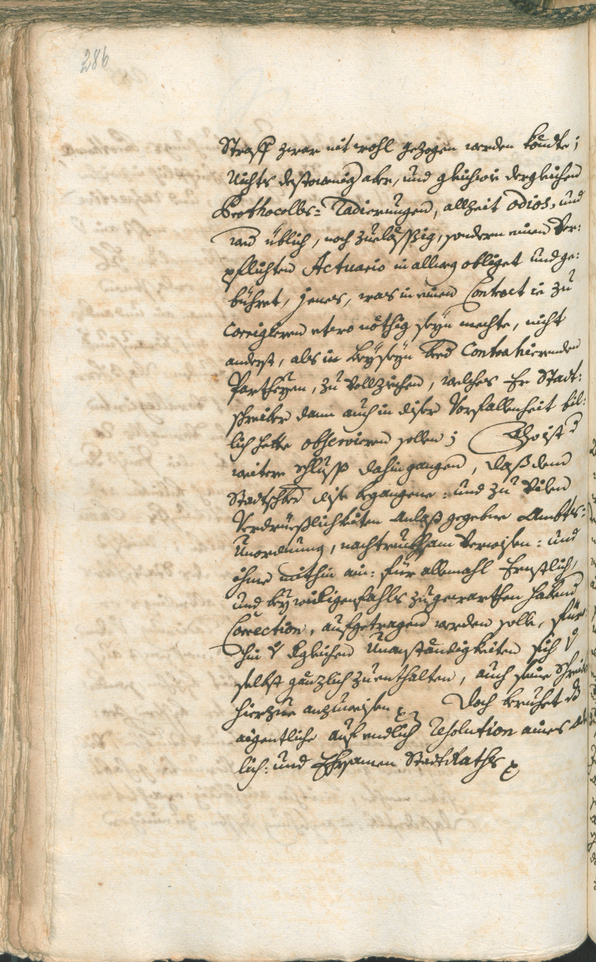 286
Straff zwar nit wohl gezogen werden köndte;
Nichts destoweniger aber, und gleichwie dergleichen
Prothocolls=Radierungen, allzeit odios, und
üblich, noch zueläßig, sondern einen Ver:
pflichten Actuario in allweg obliget und ge:
bühret, jenes, was in einem Contract zu
Corrigieren etwo nöthig seyn mechte, nicht
anderst, als in beyseyn beed Contrahierenden
Partheyen, zu vollziehen, welches Er Stadt:
schreiber dann auch in diser Vorfallenheit bil:
lich hette observieren sollen; Also ist
weitere Schluß dahin gangen, daß dem
Stadtschbr dise begangene: und zu vilen
Verdrüeßlichkeiten Anlaß gegebne Ambts:
Unordnung, nachtrucksam verweisen: und
ihme mithin ain: für allemahl Ernstlich,
und bey widrigenfahls zugewartten habend
Correction, aufgetragen werden solle, für
hin dgleichen Unanständigkeiten sich
selbst gänzlich zuenthalten, auch seine Schreiber
hierzue anzuweisen. Doch beruhet
aigentliche auf endlich resolution aines
lich: und Ehrsamen Stadt Raths